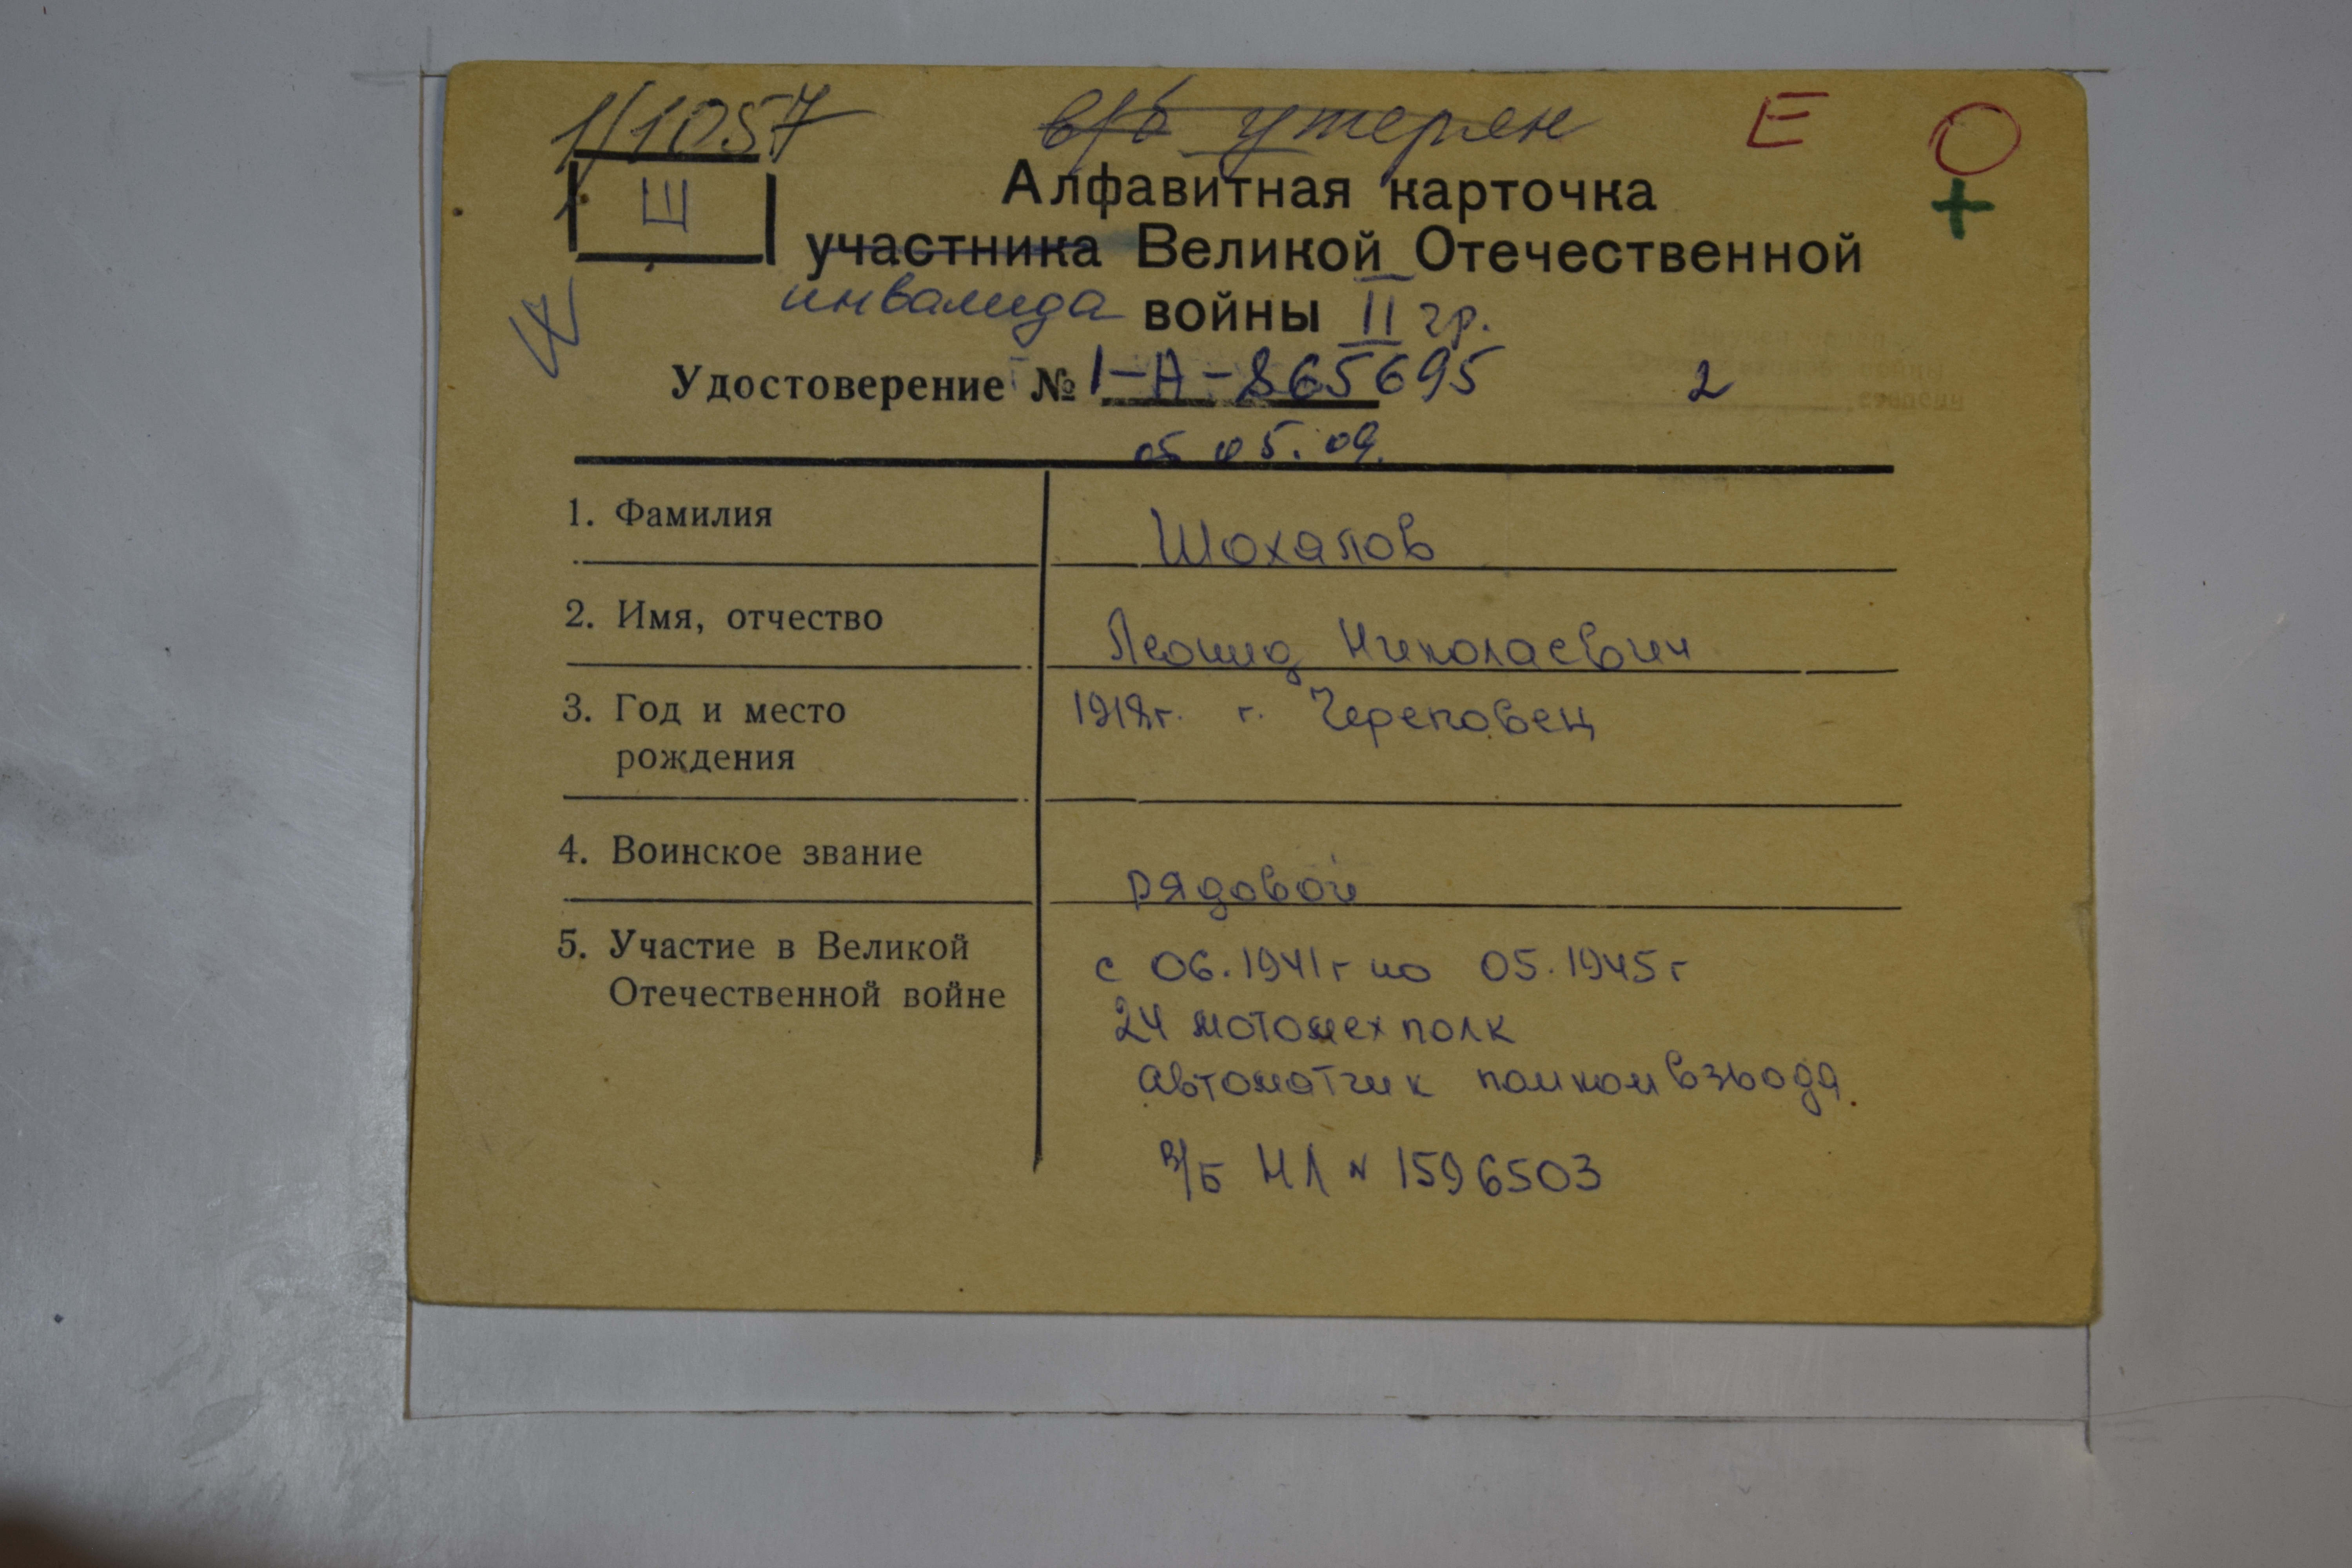 1/1057
в/б утерян
Е О
+
Ш
Алфавитная карточка
участника Великой Отечественной
инвалида войны II гр.
Удостоверение № 1-А-865695 2
05.09.
1. Фамилия Шохапов
2. Имя, отчество Леонид Николаевич
3. Год и место 1918г. г. Череповец
рождения
4. Воинское звание рядовой
5. Участие в Великой с 06.1941г по 05.1945г
Отечественной войне 24 мотомех полк
автоматчик помкомвзвода.
в/б НЛ N 1596503